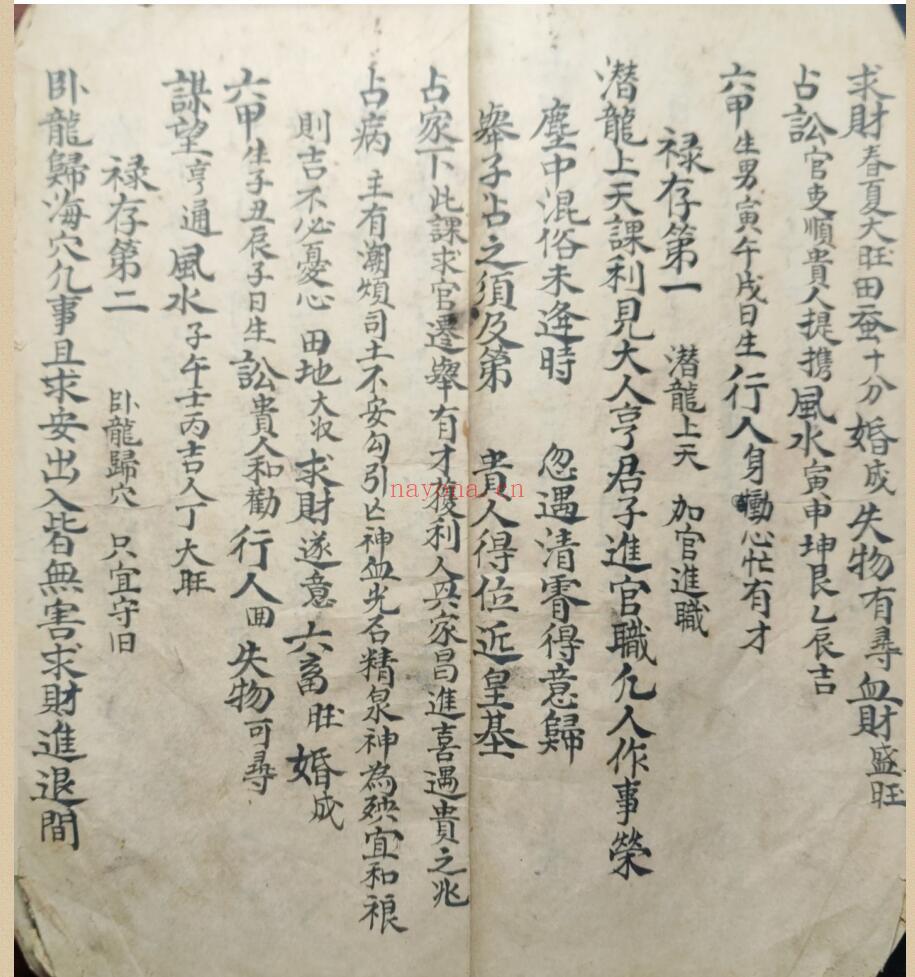 求財春夏大旺田蚕十分婚成失物有尋血財盛旺
占訟官吏順貴人提携風水寅申坤艮乙辰吉
六甲生男寅午戌日生行人身動心忙有才
禄存第一 潜龍上天 加官進職
潜龍上天課利見大人亨君子進官職凢人作事榮
塵中混俗未逢時 忽遇清霄得意歸
舉子占之須及第 貴人得位近皇基
占家下此課求官遷舉有才獲利人興家昌進喜遇貴之兆
占病主有潮煩司土不安勾引凶神血光石精泉神為殃宜和禳
則吉不必憂心田地大収求財遂意六畜旺婚成
六甲生子丑辰子日生訟貴人和勸行人囬失物可尋
謀望亨通風水子午壬丙吉人丁大旺
禄存第二 卧龍歸穴 只宜守旧
卧龍歸海穴凢事且求安出入皆無害求財進退間
nayona.cn